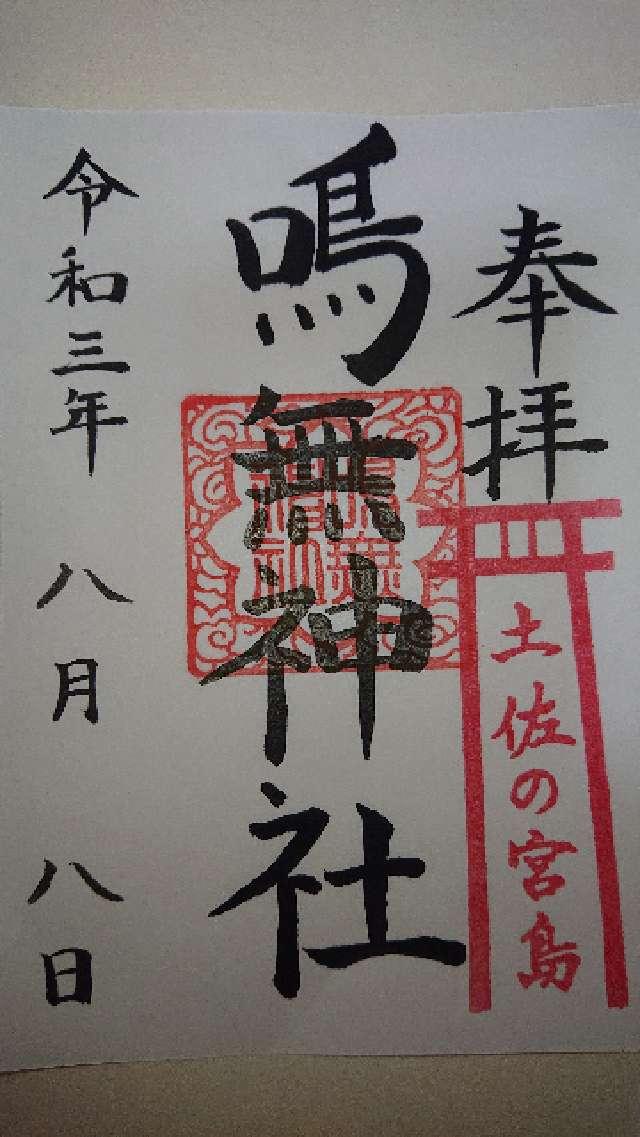 奉拝
土佐の宮島
鳴無神社
令和三年 八月 八日